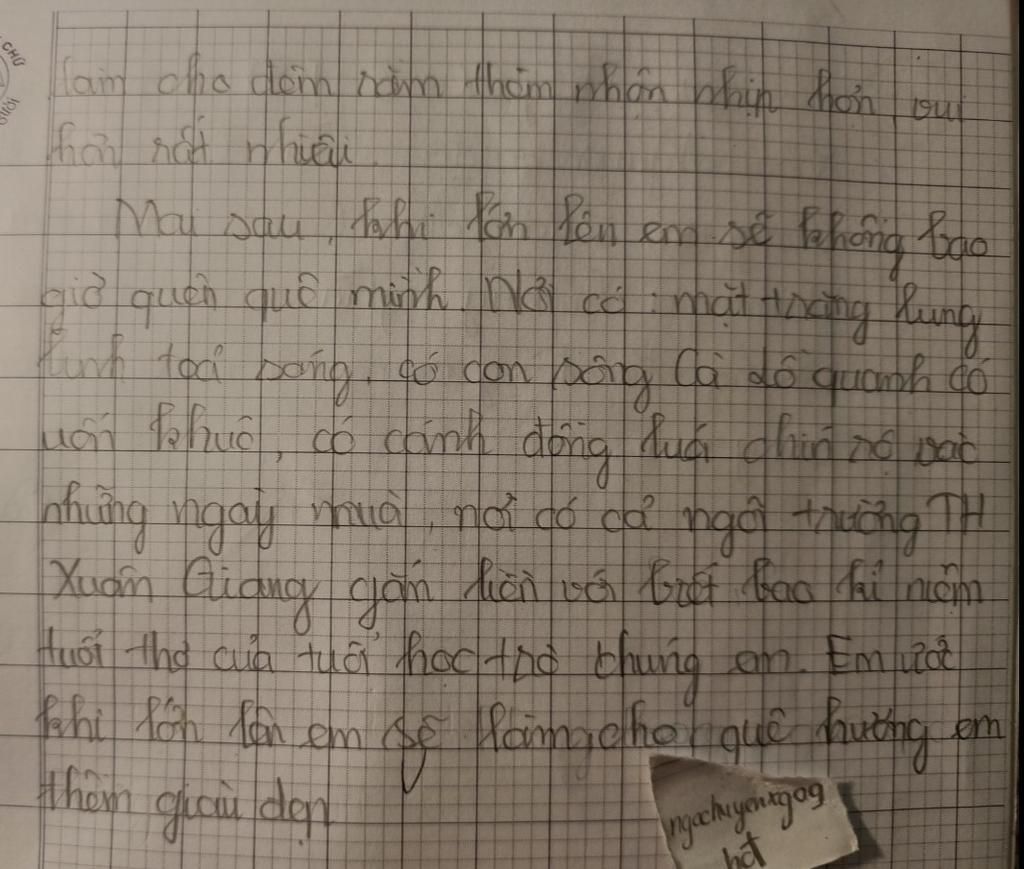 CHỮ
làm cho đêm rằm thêm nhộn nhịp hơn vui
hơn rất nhiều
Mai sau, khi lớn lên em sẽ không bao
giờ quên quê mình. Nơi có mặt trăng lung
linh toả sáng, có con sông Cà dồ quanh co
uốn khúc, có cánh đồng lúa chín
những ngày mùa, nơi có cả ngôi trường TH
Xuân Giang gắn liền với biết bao kỉ niệm
tuổi thơ của tuổi học trò chúng em. Em ước
khi lớn lên em sẽ làm cho quê hương em
thêm giàu đẹp
ngochuyenxgog
hđ